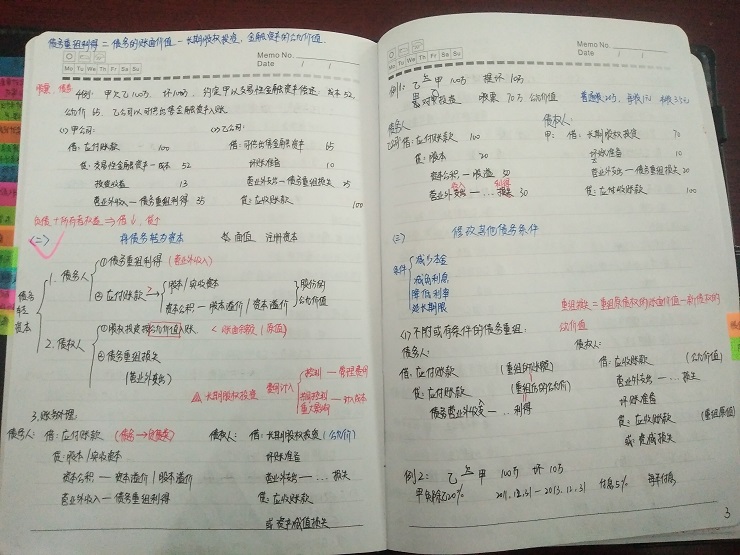 债务重组利得 = 债务的账面价值 - 长期股权投资、金融资产的公允价值
Memo No.
Date / /
Mo Tu We Th Fr Sa Su
例: 甲欠乙100万, 坏10万, 约定甲以交易性金融资产偿还, 成本52,
公允价65, 乙公司以可供出售金融资产入账
(1) 甲公司:
借: 应付账款 100
贷: 交易性金融资产—成本 52
投资收益 13
营业外收入—债务重组利得 35
(2) 乙公司:
借: 可供出售金融资产 65
坏账准备 10
营业外支出—债务重组损失 25
贷: 应收账款 100
负债+所有者权益 → 借↓, 贷↑
(二) 将债务转为资本 面值 注册资本
债务转资本
1. 债务人
① 债务重组利得 (营业外收入)
② 应付账款 ?
股本/实收资本
资本公积—股本溢价/资本溢价
股份的公允价值
2. 债权人
① 股权投资按公允价值入账 < 账面余额 (原值)
② 债务重组损失
(营业外支出)
△ 长期股权投资 费用计入
控制 — 管理费用
共同控制 重大影响 — 计入成本
3. 账务处理
债务人: 借: 应付账款
贷: 股本/实收资本
资本公积—资本溢价/股本溢价
营业外收入—债务重组利得
债权人: 借: 长期股权投资 (公允价)
坏账准备
营业外支出—… 损失
贷: 应收账款
或 资产减值损失
Memo No.
Date / /
Mo Tu We Th Fr Sa Su
例1: 乙欠甲 100万 提坏10万
对甲投资 股票 70万 公允价值
债务人
乙: 借: 应付账款 100
贷: 股本 20
资本公积—股溢 50
营业外收入—… 利得 30
债权人:
甲: 借: 长期股权投资 70
坏账准备 10
营业外支出—债务重组损失 20
贷: 应收账款 100
(三) 修改其他债务条件
条件
减少本金
减免利息
降低利率
延长期限
重组损失 = 重组原债权的账面价值 - 新债权的公允价值
(1) 不附或有条件的债务重组:
债务人:
借: 应付账款 (重组的账面)
贷: 应付账款 (重组后的公允价)
营业外收入—… 利得
债权人:
借: 应收账款 (公允价值)
营业外支出—… 损失
坏账准备
贷: 应收账款 (重组原值)
或: 资减损失
例2: 乙欠甲 100万 坏10万
甲免除乙20% 2011.12.31 - 2013.12.31 付息5% 每年付息
3